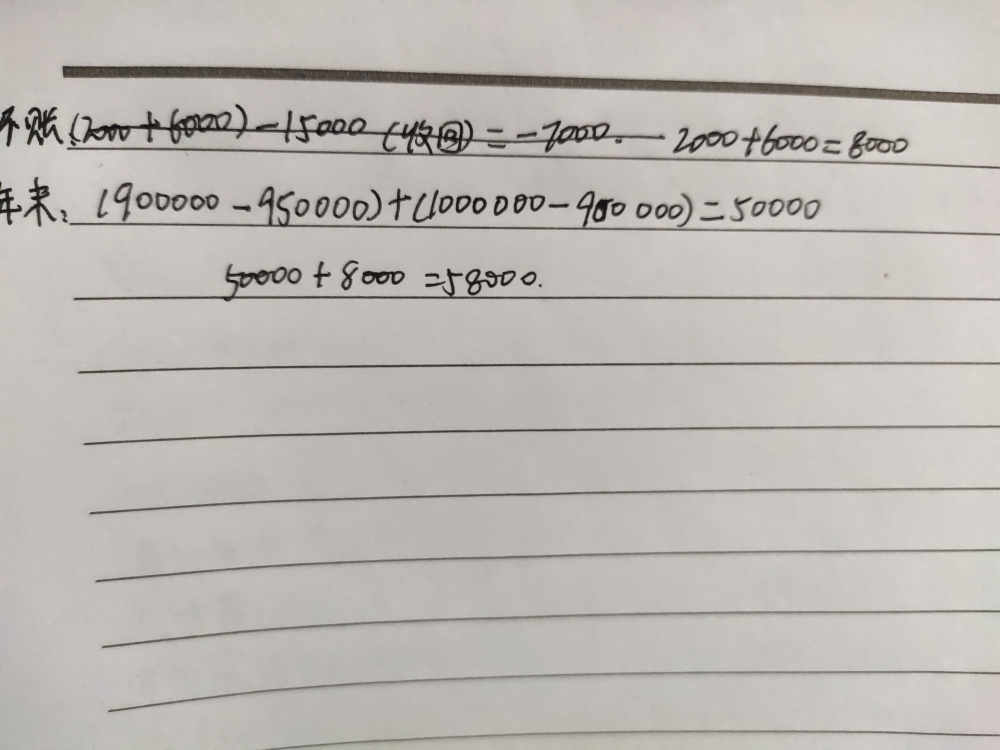 坏账:(2000+6000)-15000(收回)=-7000. 2000+6000=8000
年末:(900000-950000)+(1000000-900000)=50000
50000+8000=58000.